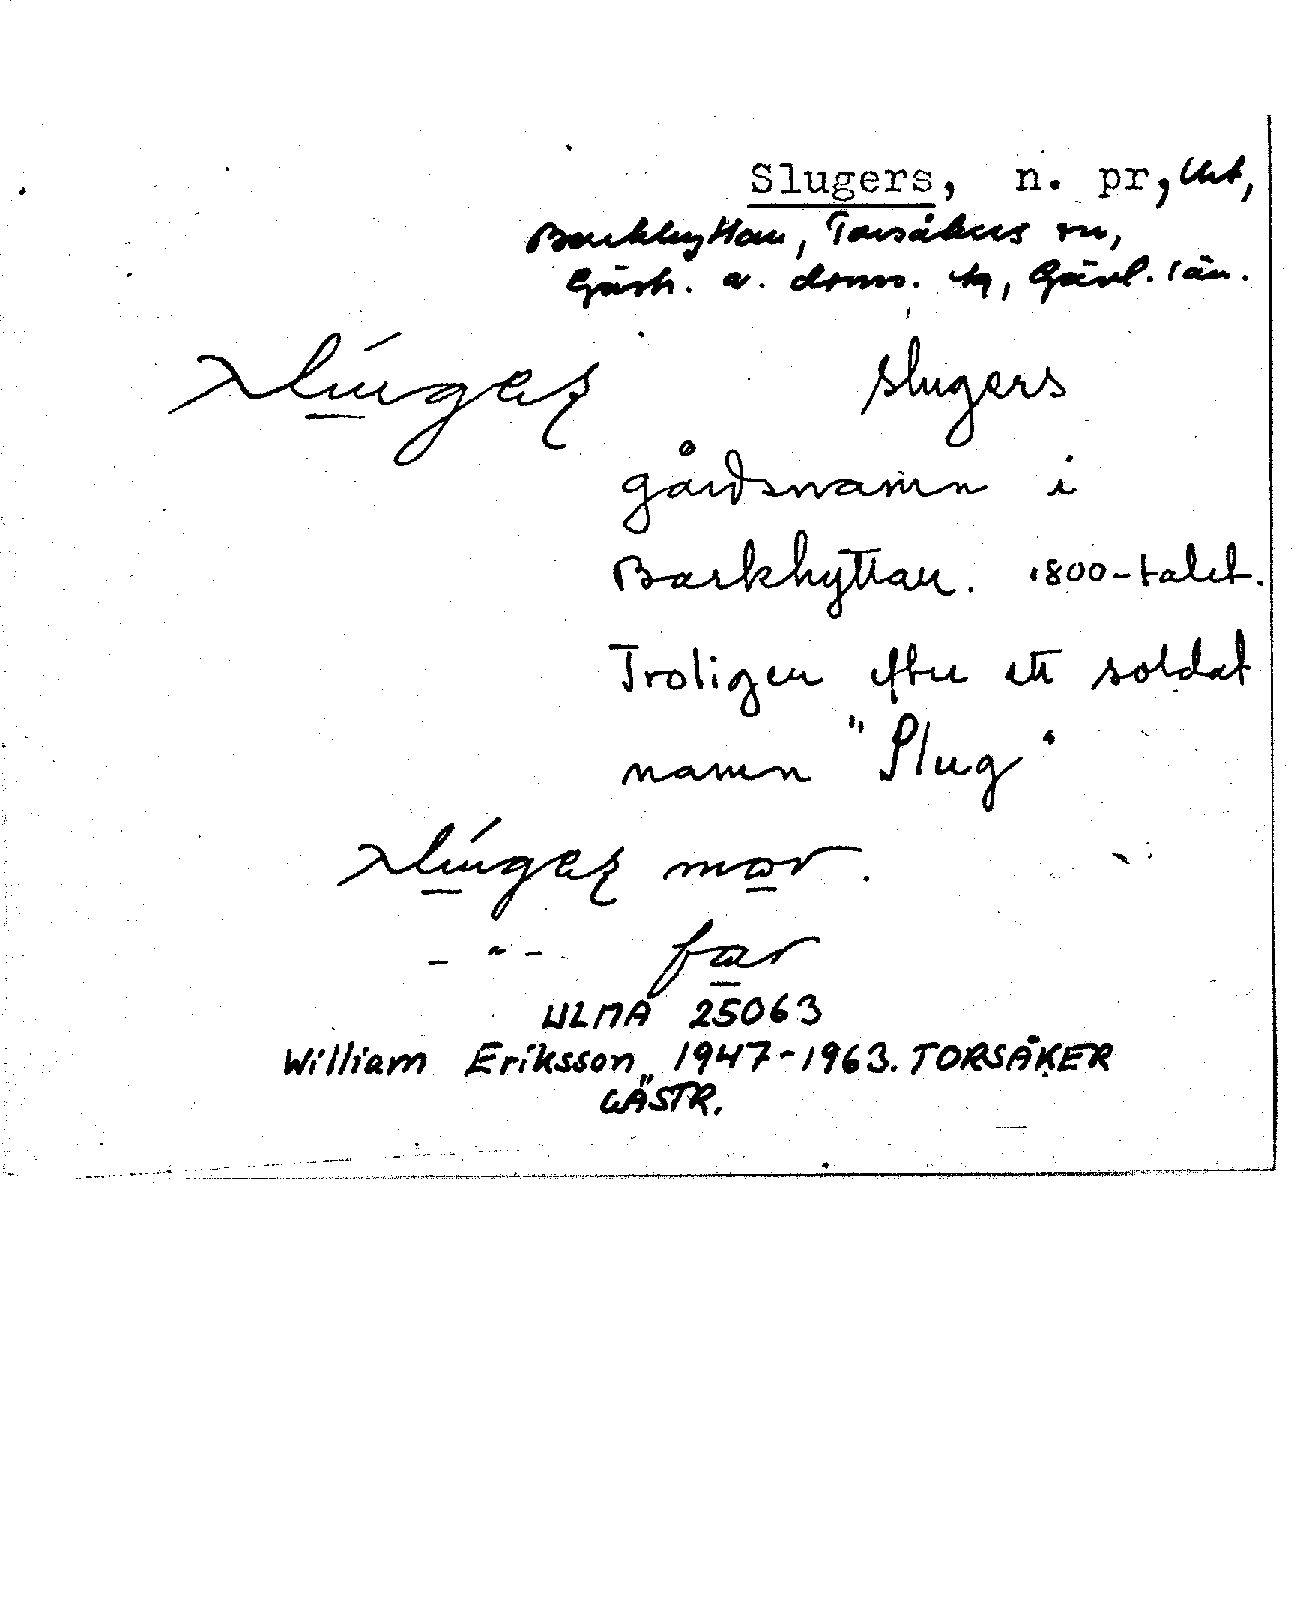 Slugers, n. pr,
Barkhyttan, Torsåkers sn,
Gästr. ö. doms. tg, Gävl. län.
slúgeş slugers
gårdsnamn i
Barkhyttan. 1800-talet.
Troligen efter ett soldat
namn "Slug"
slúgeş mor.
- " - far
ULMA 25063
William Eriksson 1947-1963. TORSÅKER
GÄSTR.